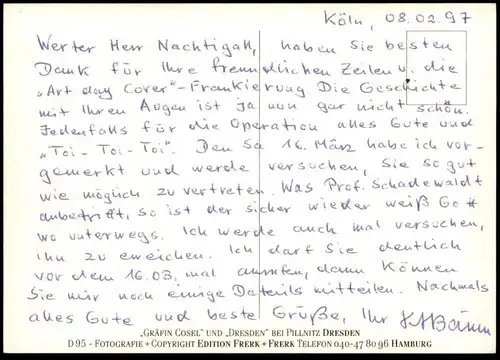 Köln, 08.02.97
Werter Herr Nachtigall, haben Sie besten
Dank für Ihre freundlichen Zeilen u. die
„Art day Cover"-Frankierung Die Geschichte
mit Ihren Augen ist ja nun gar nicht schön.
Jedenfalls für die Operation alles Gute und
„Toi-Toi-Toi". Den Sa 16. März habe ich vor-
gemerkt und werde versuchen, Sie so gut
wie möglich zu vertreten. Was Prof. Schadewaldt
anbetrifft, so ist der sicher wieder weiß Gott
wo unterwegs. Ich werde auch mal versuchen,
ihn zu erreichen. Ich darf Sie
vor dem 16.03. mal anrufen, dann können
Sie mir noch einige Details mitteilen. Nochmals
alles Gute und beste Grüße, Ihr
„GRÄFIN COSEL" UND „DRESDEN" BEI PILLNITZ DRESDEN
D 95 - FOTOGRAFIE + COPYRIGHT EDITION FRERK + FRERK TELEFON 040-47 80 96 HAMBURG